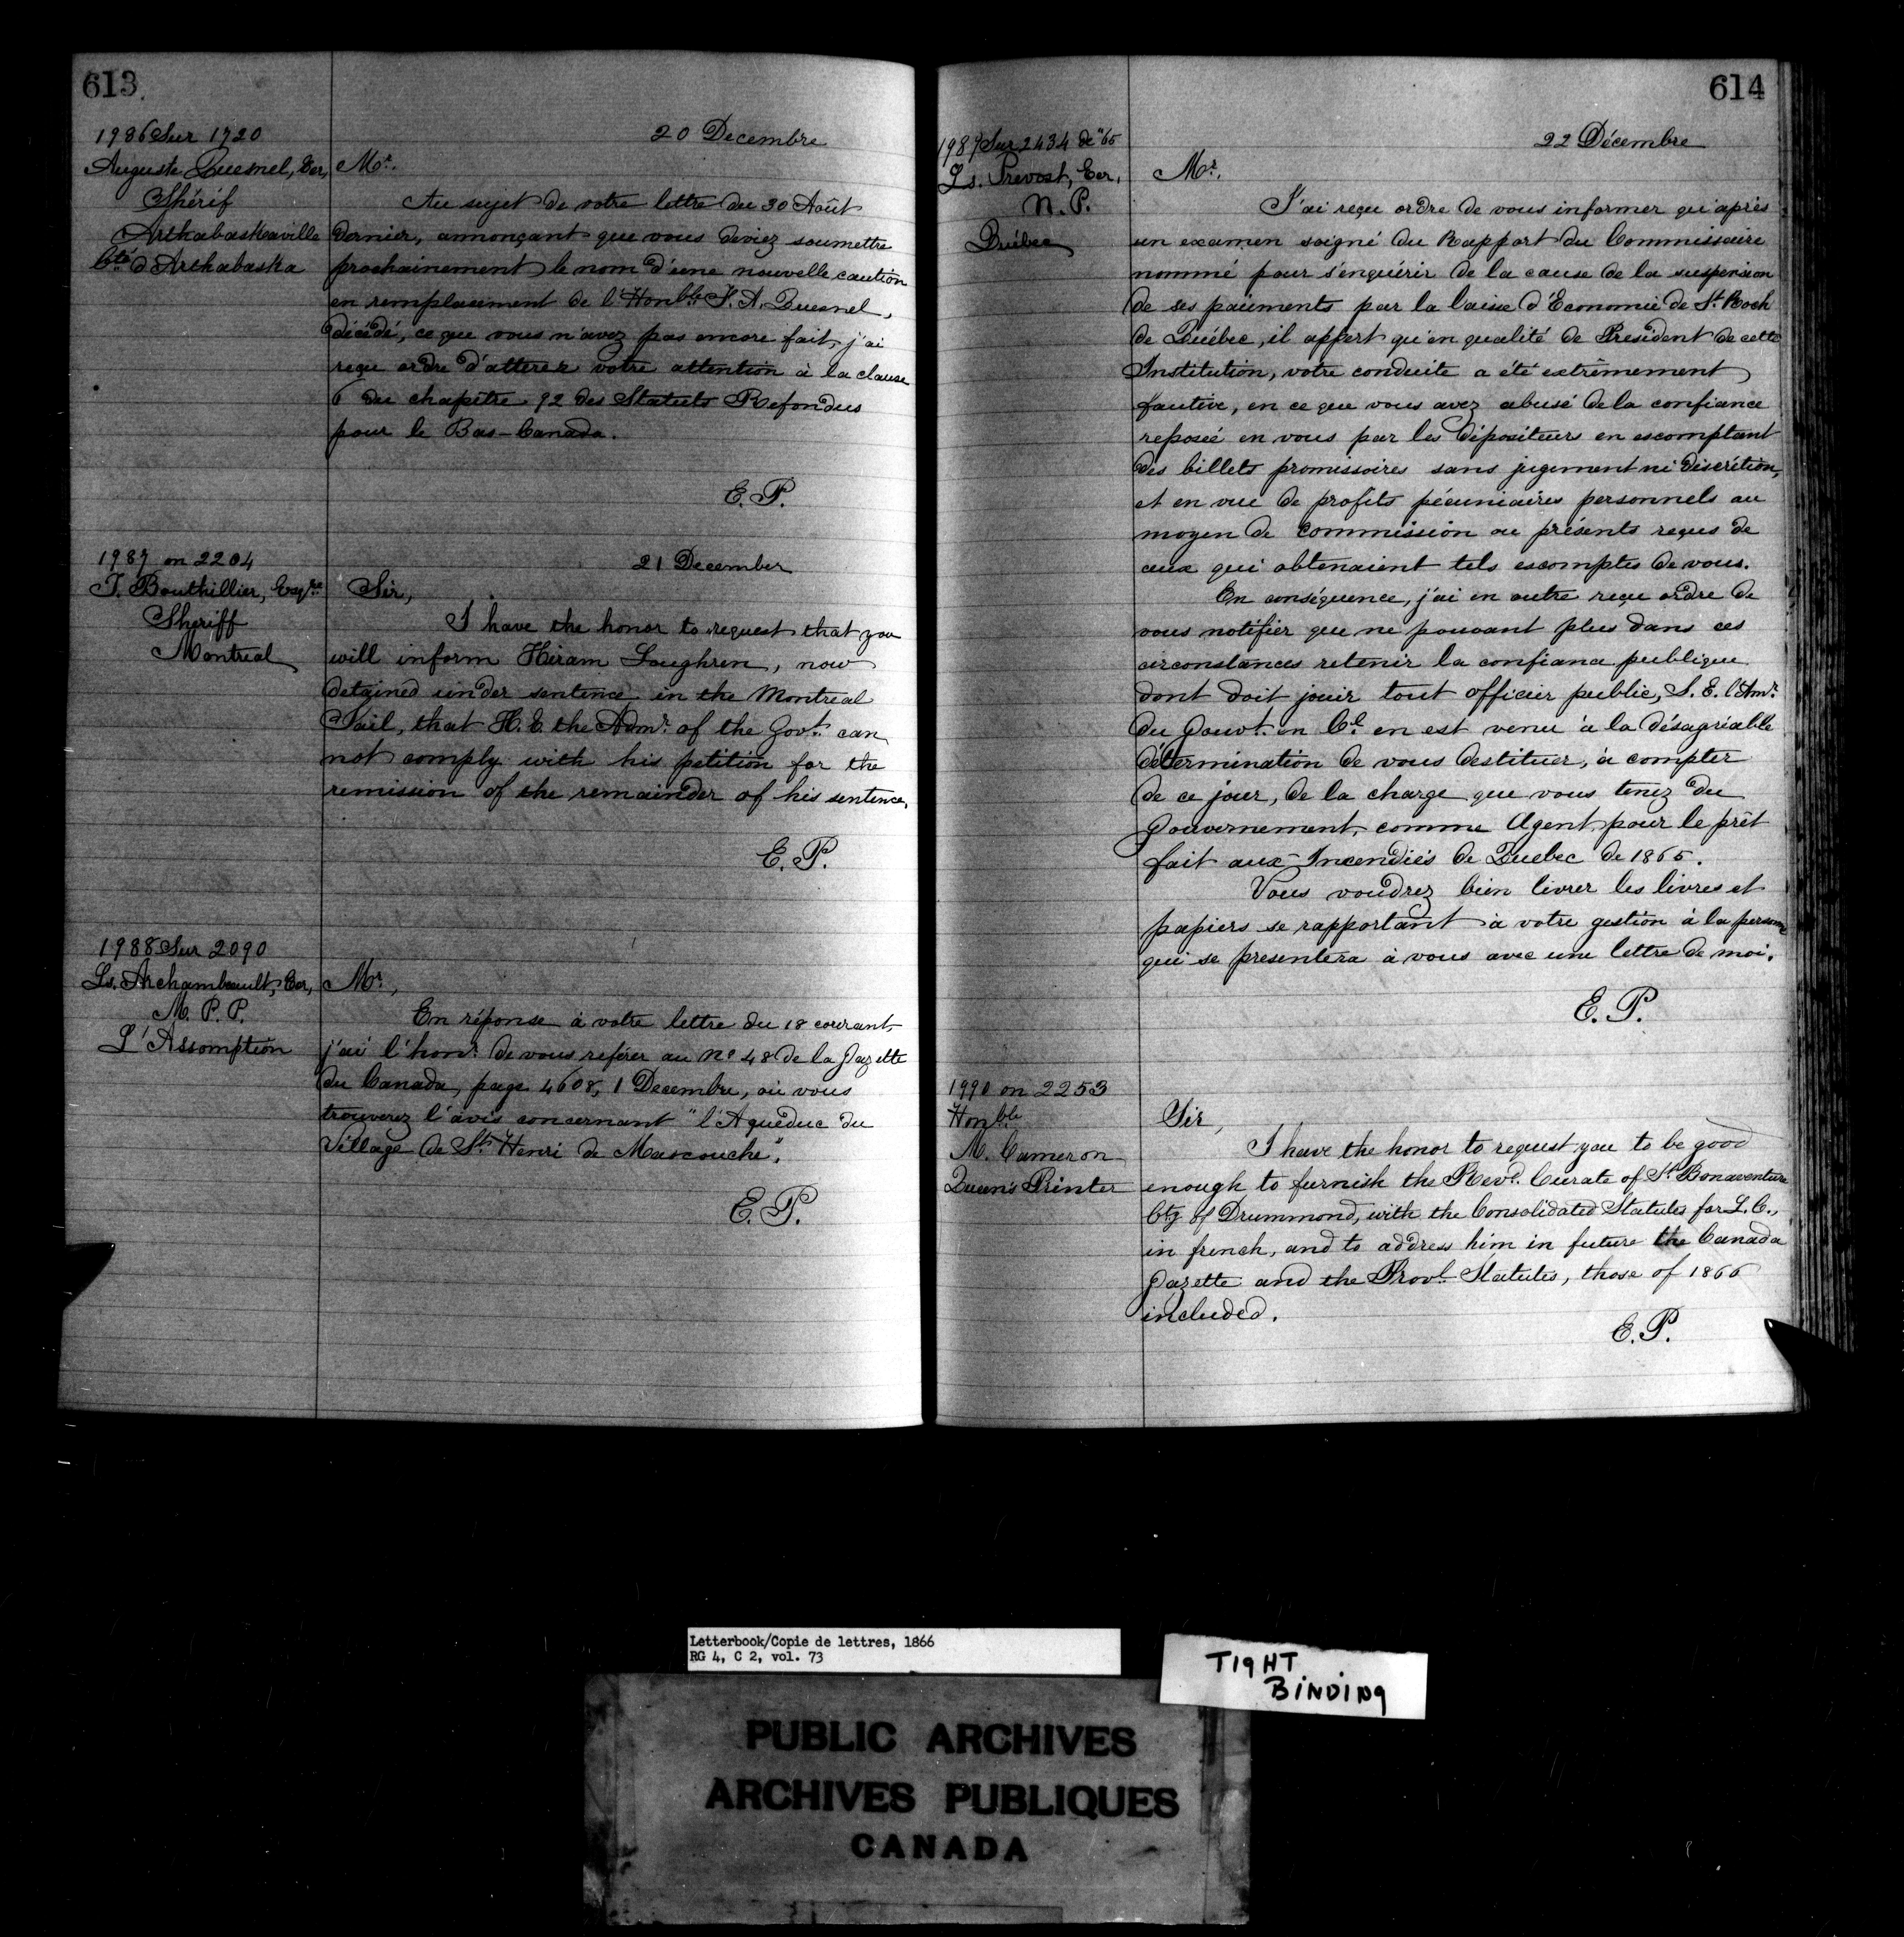 613
1986 Sur 1720
Auguste Quesnel, Ecr,
Shérif
Arthabaskaville
Cté d'Arthabaska
20 Decembre
Mr.
Au sujet de votre lettre du 30 Août
dernier, annonçant que vous deviez soumettre
prochainement le nom d'une nouvelle caution
en remplacement de l'Honble J. A. Quesnel,
décédé, ce que vous n'avez pas encore fait, j'ai
reçu ordre d'attirer votre attention à la clause
6 du chapitre 92 des Statuts Refondus
pour le Bas-Canada.
E. P.
1987 on 2204
T. Bouthillier, Esqre
Sheriff
Montreal
21 December
Sir,
I have the honor to request that you
will inform Hiram Loughren, now
detained under sentence in the Montreal
Jail, that H. E. the Admr. of the Govt. can
not comply with his petition for the
remission of the remainder of his sentence.
E. P.
1988 Sur 2090
Ls. Archambeault, Ecr,
M. P. P.
L'Assomption
Mr,
En réponse à votre lettre du 18 courant
j'ai l'honr. de vous reférer au No 48 de la Gazette
du Canada, page 4608, 1 Decembre, où vous
trouverez l'avis concernant "l'Aqueduc du
Village de St. Henri de Mascouche".
E. P.
614
1989 Sur 2434 de "65
Ls. Prevost, Ecr,
N. P.
Québec
22 Décembre
Mr,
J'ai reçu ordre de vous informer qu'après
un examen soigné du Rapport du Commissaire
nommé pour s'enquérir de la cause de la suspension
de ses paiements par la Caisse d'Economie de St. Roch
de Québec, il appert qu'en qualité de President de cette
Institution, votre conduite a été extrêmement
fautive, en ce que vous avez abusé de la confiance
reposée en vous par les dépositeurs en escomptant
des billets promissoires sans jugement ni discrétion,
et en vue de profits pécuniaires personnels au
moyen de commission ou présents reçus de
ceux qui obtenaient tels escomptes de vous.
En conséquence, j'ai en outre reçu ordre de
vous notifier que ne pouvant plus dans ces
circonstances retenir la confiance publique
dont doit jouir tout officier public, S. E. l'Amr.
du Gouvt. en Cl. en est venu à la désagréable
détermination de vous destituer, à compter
de ce jour, de la charge que vous tenez du
Gouvernement, comme Agent pour le prêt
fait aux Incendiés de Quebec de 1865.
Vous voudrez bien livrer les livres et
papiers se rapportant à votre gestion à la personne
qui se presentera à vous avec une lettre de moi.
E. P.
1990 on 2253
Honble
M. Cameron
Queen's Printer
Sir,
I have the honor to request you to be good
enough to furnish the Revd. Curate of St. Bonaventure
Cty of Drummond, with the Consolidated Statutes for L. C.,
in french, and to address him in future the Canada
Gazette and the Provl. Statutes, those of 1866
included.
E. P.
Letterbook/Copie de lettres, 1866
RG 4, C 2, vol. 73
TIGHT
BINDING
PUBLIC ARCHIVES
ARCHIVES PUBLIQUES
CANADA